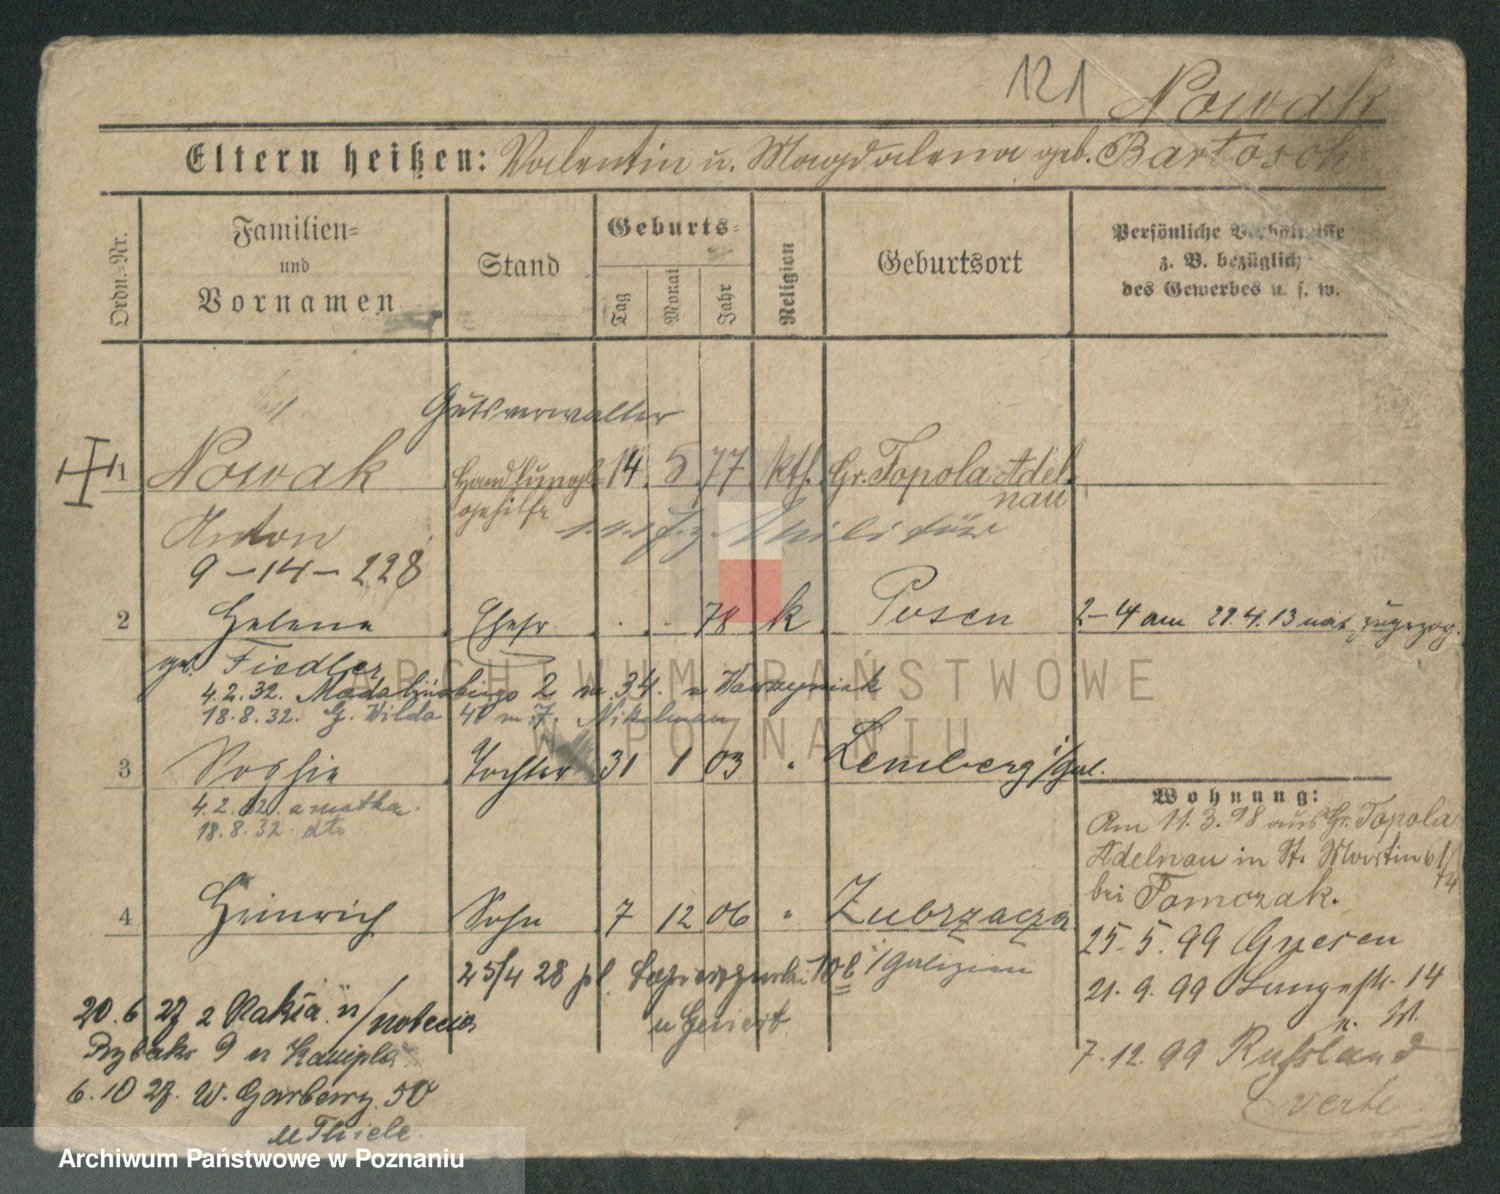 121 Nowak
Eltern heißen: Valentin u. Magdalena geb. Bartosch
Ordn.-Nr.
Familien-
und
Vornamen
Stand
Geburts-
Tag
Monat
Jahr
Religion
Geburtsort
Persönliche Verhältnisse
z. B. bezüglich
des Gewerbes u. s. w.
Gutsverwalter
1 Nowak Handlungs- 14 5 77 kth. Gr. Topola Adel-
gehilfe nau
Anton z. Militär
9-14-228
2 Helene Ehefr. . . 78 k Posen 2-4 am 21.4.13 zugezog.
geb. Fiedler
4.2.32. Madalińskiego 2 m. 34. u Wawrzyniak
18.8.32. G. Wilda 41 m. 7.
3 Sophie Tochter 31 1 03 " Lemberg /Gal.
4.2.32. z matka
18.8.32 dto
Wohnung:
Am 11.3.98 aus Gr. Topola
Adelnau in St. Martin 61/
74
bei Tomczak.
4 Heinrich Sohn 7 12 06 " Zubrzacza
/Galizien
25/4 28 pl. 10b
25.5.99 Gnesen
21.9.99 Langestr. 14
n. W.
7.12.99 Russland
verte
20.6 27 z Rakia n/notecia
Rybaki 9 u
6.10 27. W. Garbary 50
u Thiele
ARCHIWUM PAŃSTWOWE
W POZNANIU
Archiwum Państwowe w Poznaniu